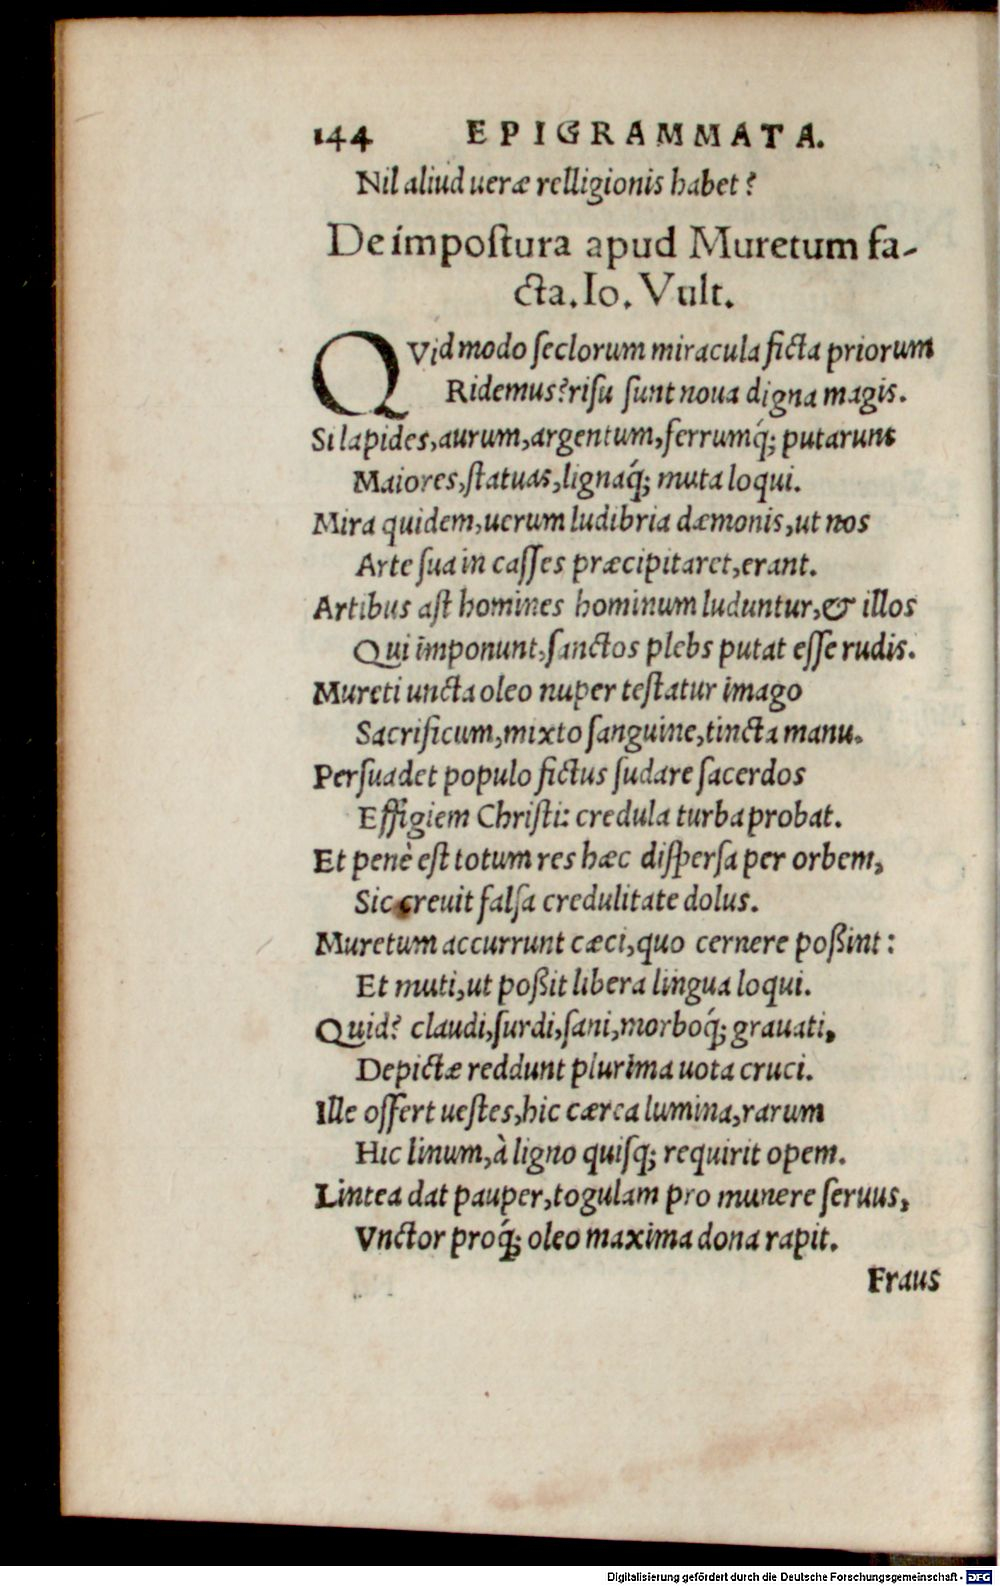 144 EPIGRAMMATA.
Nil aliud ueræ relligionis habet?
De impostura apud Muretum fa-
cta. Io. Vult.
QVid modo seclorum miracula ficta priorum
Ridemus? risu sunt noua digna magis.
Si lapides, aurum, argentum, ferrumq́; putarunt
Maiores, statuas, lignaq́; muta loqui.
Mira quidem, uerum ludibria dæmonis, ut nos
Arte sua in casses præcipitaret, erant.
Artibus ast homines hominum luduntur, & illos
Qui imponunt, sanctos plebs putat esse rudis.
Mureti uncta oleo nuper testatur imago
Sacrificum, mixto sanguine, tincta manu.
Persuadet populo fictus sudare sacerdos
Effigiem Christi: credula turba probat.
Et penè est totum res hæc dispersa per orbem,
Sic creuit falsa credulitate dolus.
Muretum accurrunt cæci, quo cernere poßint:
Et muti, ut poßit libera lingua loqui.
Quid? claudi, surdi, sani, morboq́; grauati,
Depictæ reddunt plurima uota cruci.
Ille offert uestes, hic cærea lumina, rarum
Hic linum, à ligno quisq; requirit opem.
Lintea dat pauper, togulam pro munere seruus,
Vnctor proq́; oleo maxima dona rapit.
Fraus
Digitalisierung gefördert durch die Deutsche Forschungsgemeinschaft - DFG